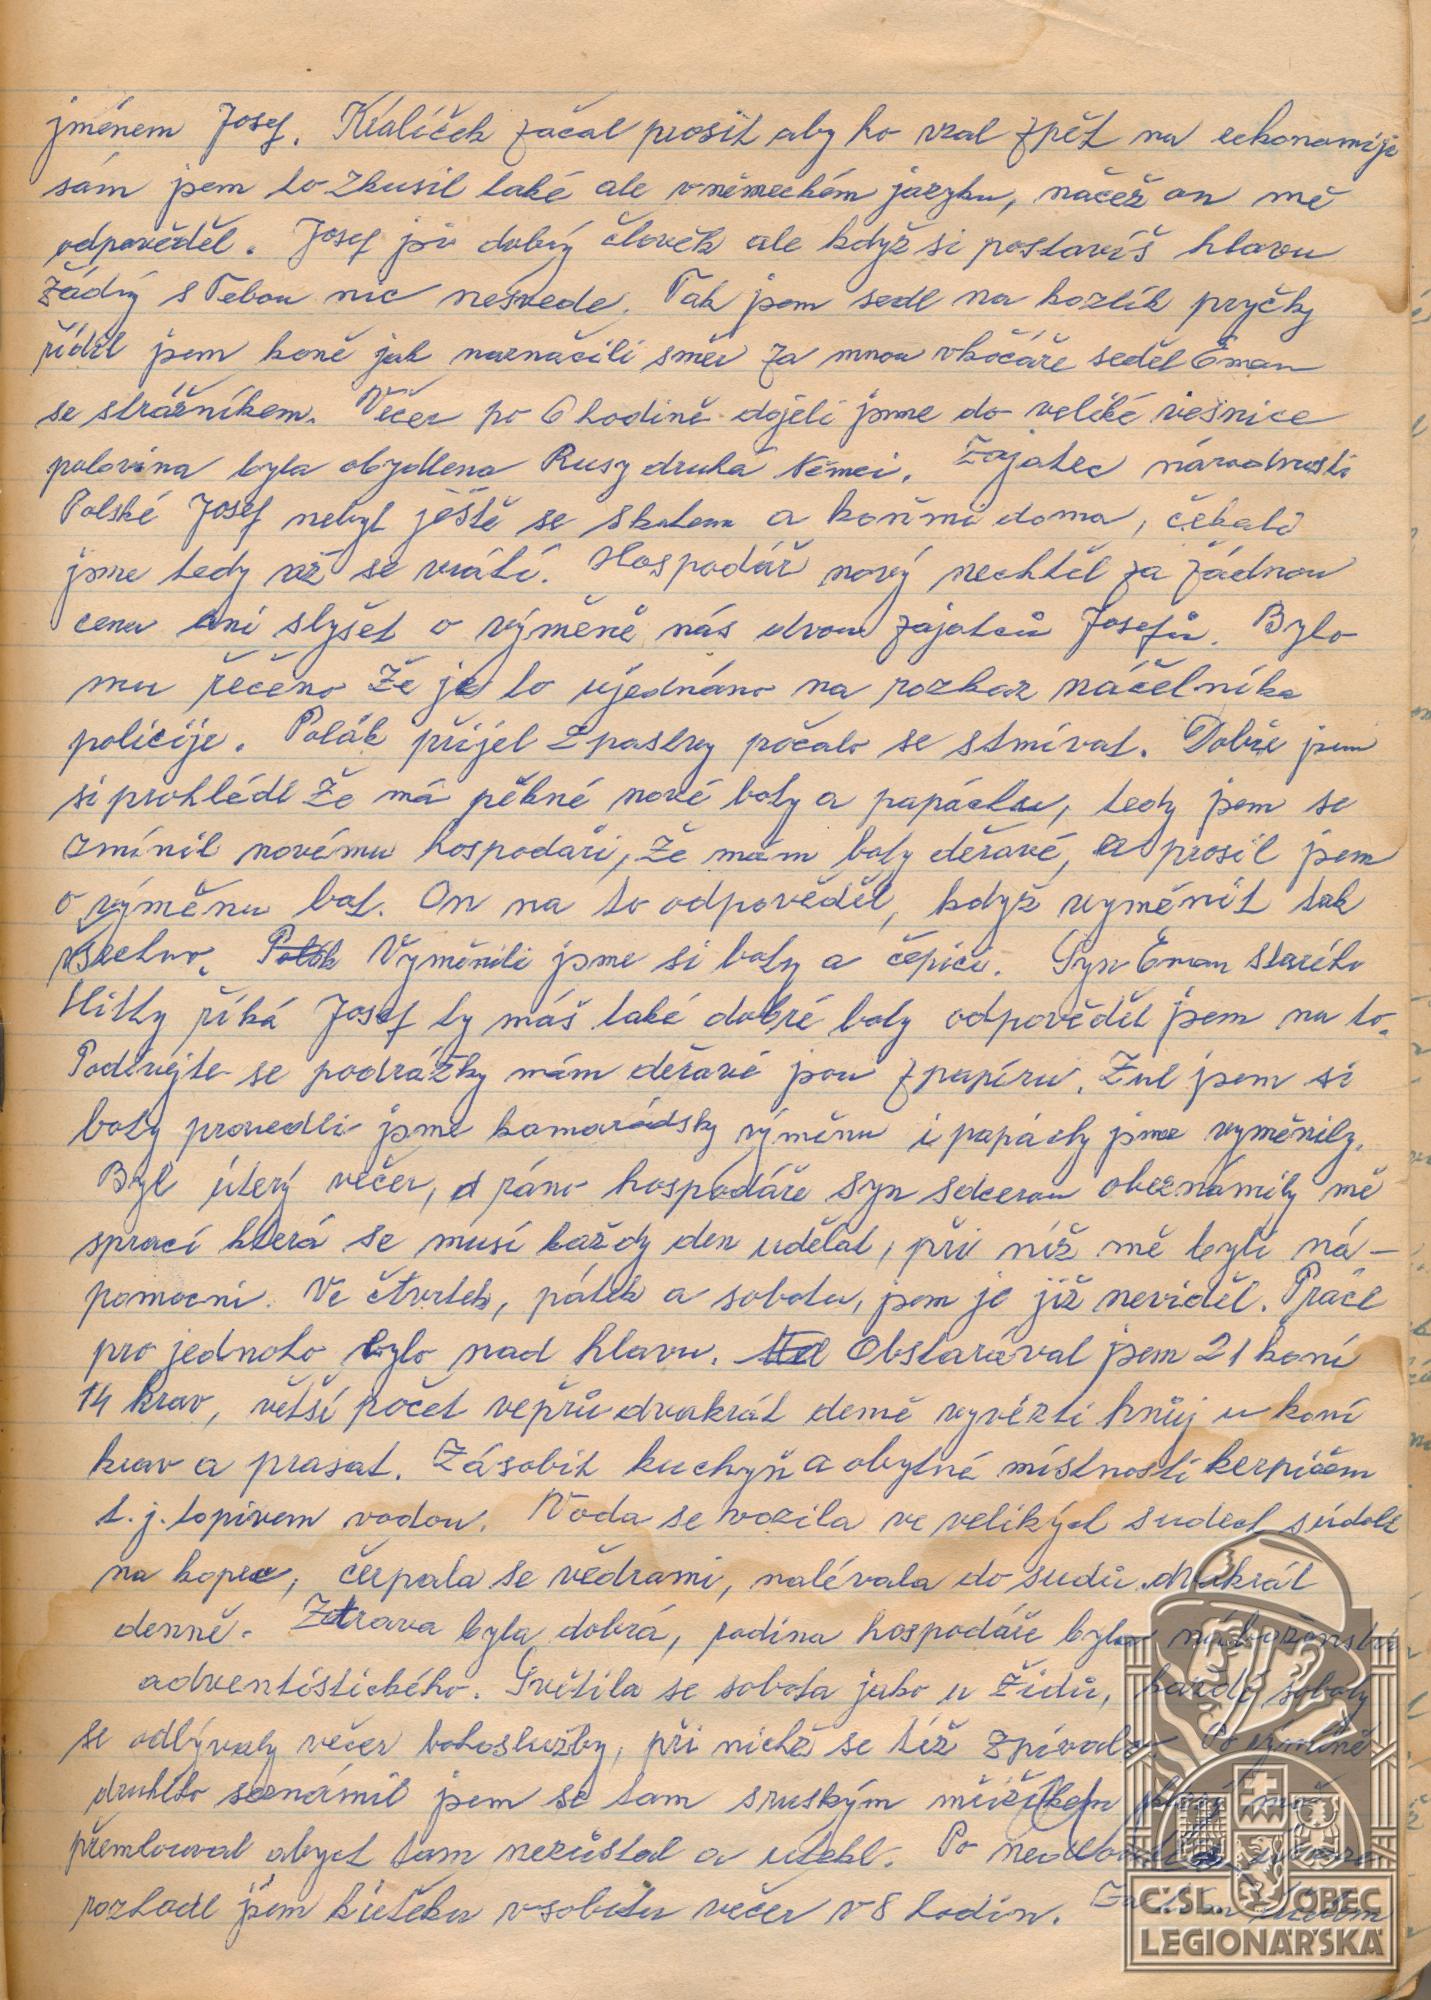 jménem Josef. Králíček začal prosit aby ho vzal zpět na eekonomiji
sám jsem to zkusil také ale vněmeckém jazyku, načež on mě
odpověděl. Josef jsi dobrý člověk ale když si postavíš hlavu
žádný s Tebou nic nesvede. Tak jsem sedl na kozlík pryčky
řídil jsem koně jak naznačili směr za mnou vkočáře seděl Eman
se strážníkem. Večer po 6 hodině dojeli jsme do veliké vesnice
polovina byla obydlena Rusy druhá Němci. Zajatec národnosti
Polské Josef nebyl ještě se skotem a koňmi doma, čekali
jsme tedy až se vrátí. Hospodář nový nechtěl za žádnou
cenu ani slyšet o výměně nás dvou zajatců Josefů. Bylo
mu řečeno že je to ujednáno na rozkaz náčelníka
policije. Polák přijel zpastvy počalo se stmívat. Dobře jsem
si prohlédl že má pěkné nové boty a papáchu, tedy jsem se
zmínil novému hospodáři, že mám boty děravé, a prosil jsem
o výměnu bot. On na to odpověděl, když vyměnit tak
všechno. Polák Vyměnili jsme si boty a čepici. Syn Eman starého
Hitky říká Josef ty máš také dobré boty odpověděl jsem na to.
Podívejte se podrážky mám děravé jsou zpapíru. Zul jsem si
boty provedli jsme kamarádsky výměnu i papáchy jsme vyměnily.
Byl úterý večer, a ráno hospodáře syn sdcerou obeznámily mě
sprací která se musí každy den udělat, při níž mě byli ná-
pomocni. Ve čtvrtek, pátek a sobotu, jsem je již neviděl. Práce
pro jednoho bylo nad hlavu. Obstarával jsem 21 koní
14 krav, větší počet vepřů dvakrát demě vyvézti hnůj u koní
krav a prasat. Zásobit kuchyň a obytné místnosti kerpičem
t. j. topivem vodou. Voda se vozila ve velikých sudech súdolí
na kopec, čerpala se vědrami, nalévala do sudů dvakrát
denně. Zatrava byla dobrá, rodina hospodáře byla náboženství
adventistického. Světila se sobota jako u Židů, každé soboty
se odbývaly večer bohoslužby, při nichž se též zpívalo. Po výměně
druhého seznámil jsem se tam sruským mužikem který mě
přemlouval abych tam nezůstal a utekl. Po
rozhodl jsem kútěku vsobotu večer v 8 hodin.
ČSL. OBEC
LEGIONÁŘSKÁ